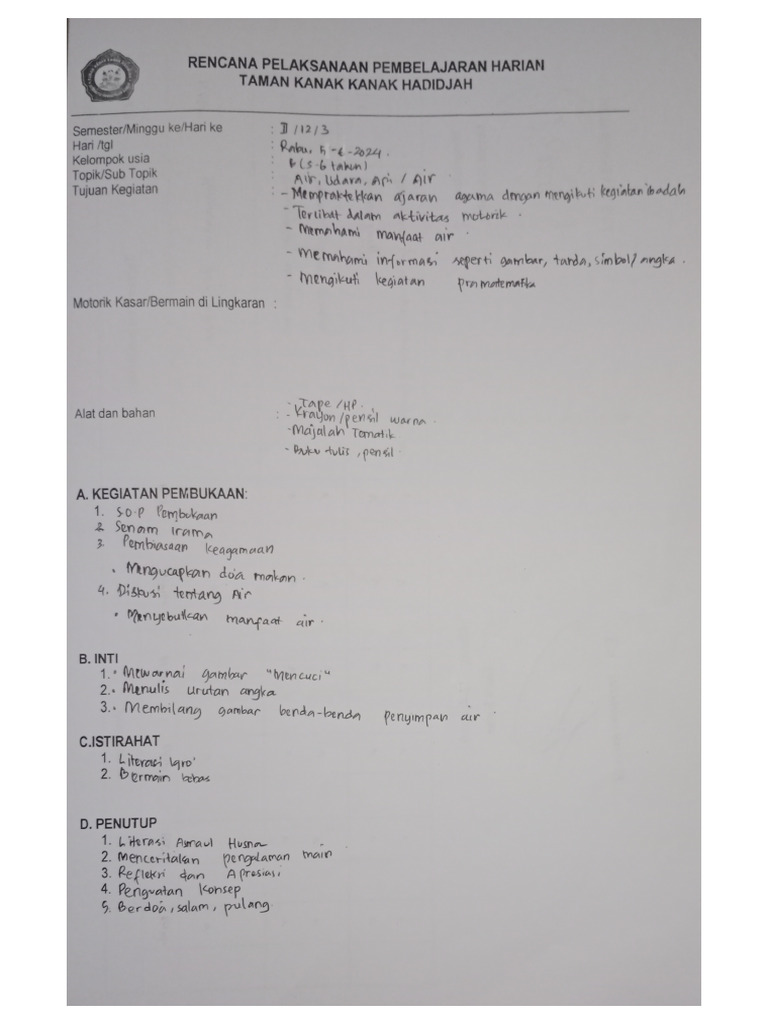 RENCANA PELAKSANAAN PEMBELAJARAN HARIAN
TAMAN KANAK KANAK HADIDJAH
Semester/Minggu ke/Hari ke : II /12/3
Hari /tgl : Rabu, 5-6-2024.
Kelompok usia : B (5-6 tahun)
Topik/Sub Topik : Air, Udara, Api / Air
Tujuan Kegiatan : - Mempraktekkan ajaran agama dengan mengikuti kegiatan ibadah
- Terlibat dalam aktivitas motorik.
- Memahami manfaat air.
- Memahami informasi seperti gambar, tanda, simbol/angka.
- Mengikuti kegiatan pramatematika
Motorik Kasar/Bermain di Lingkaran :
- Tape /HP.
Alat dan bahan : - Krayon/pensil warna.
- Majalah Tematik
- Buku tulis, pensil
A. KEGIATAN PEMBUKAAN:
1. S.O.P Pembukaan
2. Senam Irama
3. Pembiasaan keagamaan
• Mengucapkan doa makan.
4. Diskusi tentang Air
• Menyebutkan manfaat air.
B. INTI
1. • Mewarnai gambar "Mencuci"
2. • Menulis urutan angka
3. • Membilang gambar benda-benda penyimpan air.
C.ISTIRAHAT
1. Literasi Iqro'
2. Bermain bebas
D. PENUTUP
1. Literasi Asmaul Husna
2. Menceritakan pengalaman main
3. Refleksi dan Apresiasi
4. Penguatan Konsep
5. Berdoa, salam, pulang